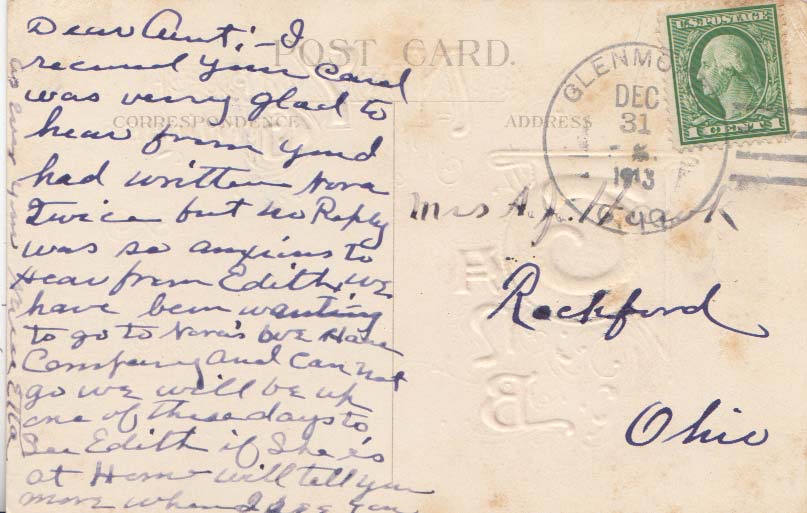 POST CARD.
CORRESPONDENCE
ADDRESS
U.S. POSTAGE
1 CENT 1
GLENMO
DEC
31
1913
Dear Aunt:- I
received your Card
was verry glad to
hear from you
had written Nora
Twice but no Reply
was so anxious to
Hear from Edith, we
have been wanting
to go to Nora's but we Have
Company and Can not
go we will be up
one of these days to
See Edith if She's
at Home will tell you
more when I see you
your Ella
Mrs A.J.
Rockford
Ohio